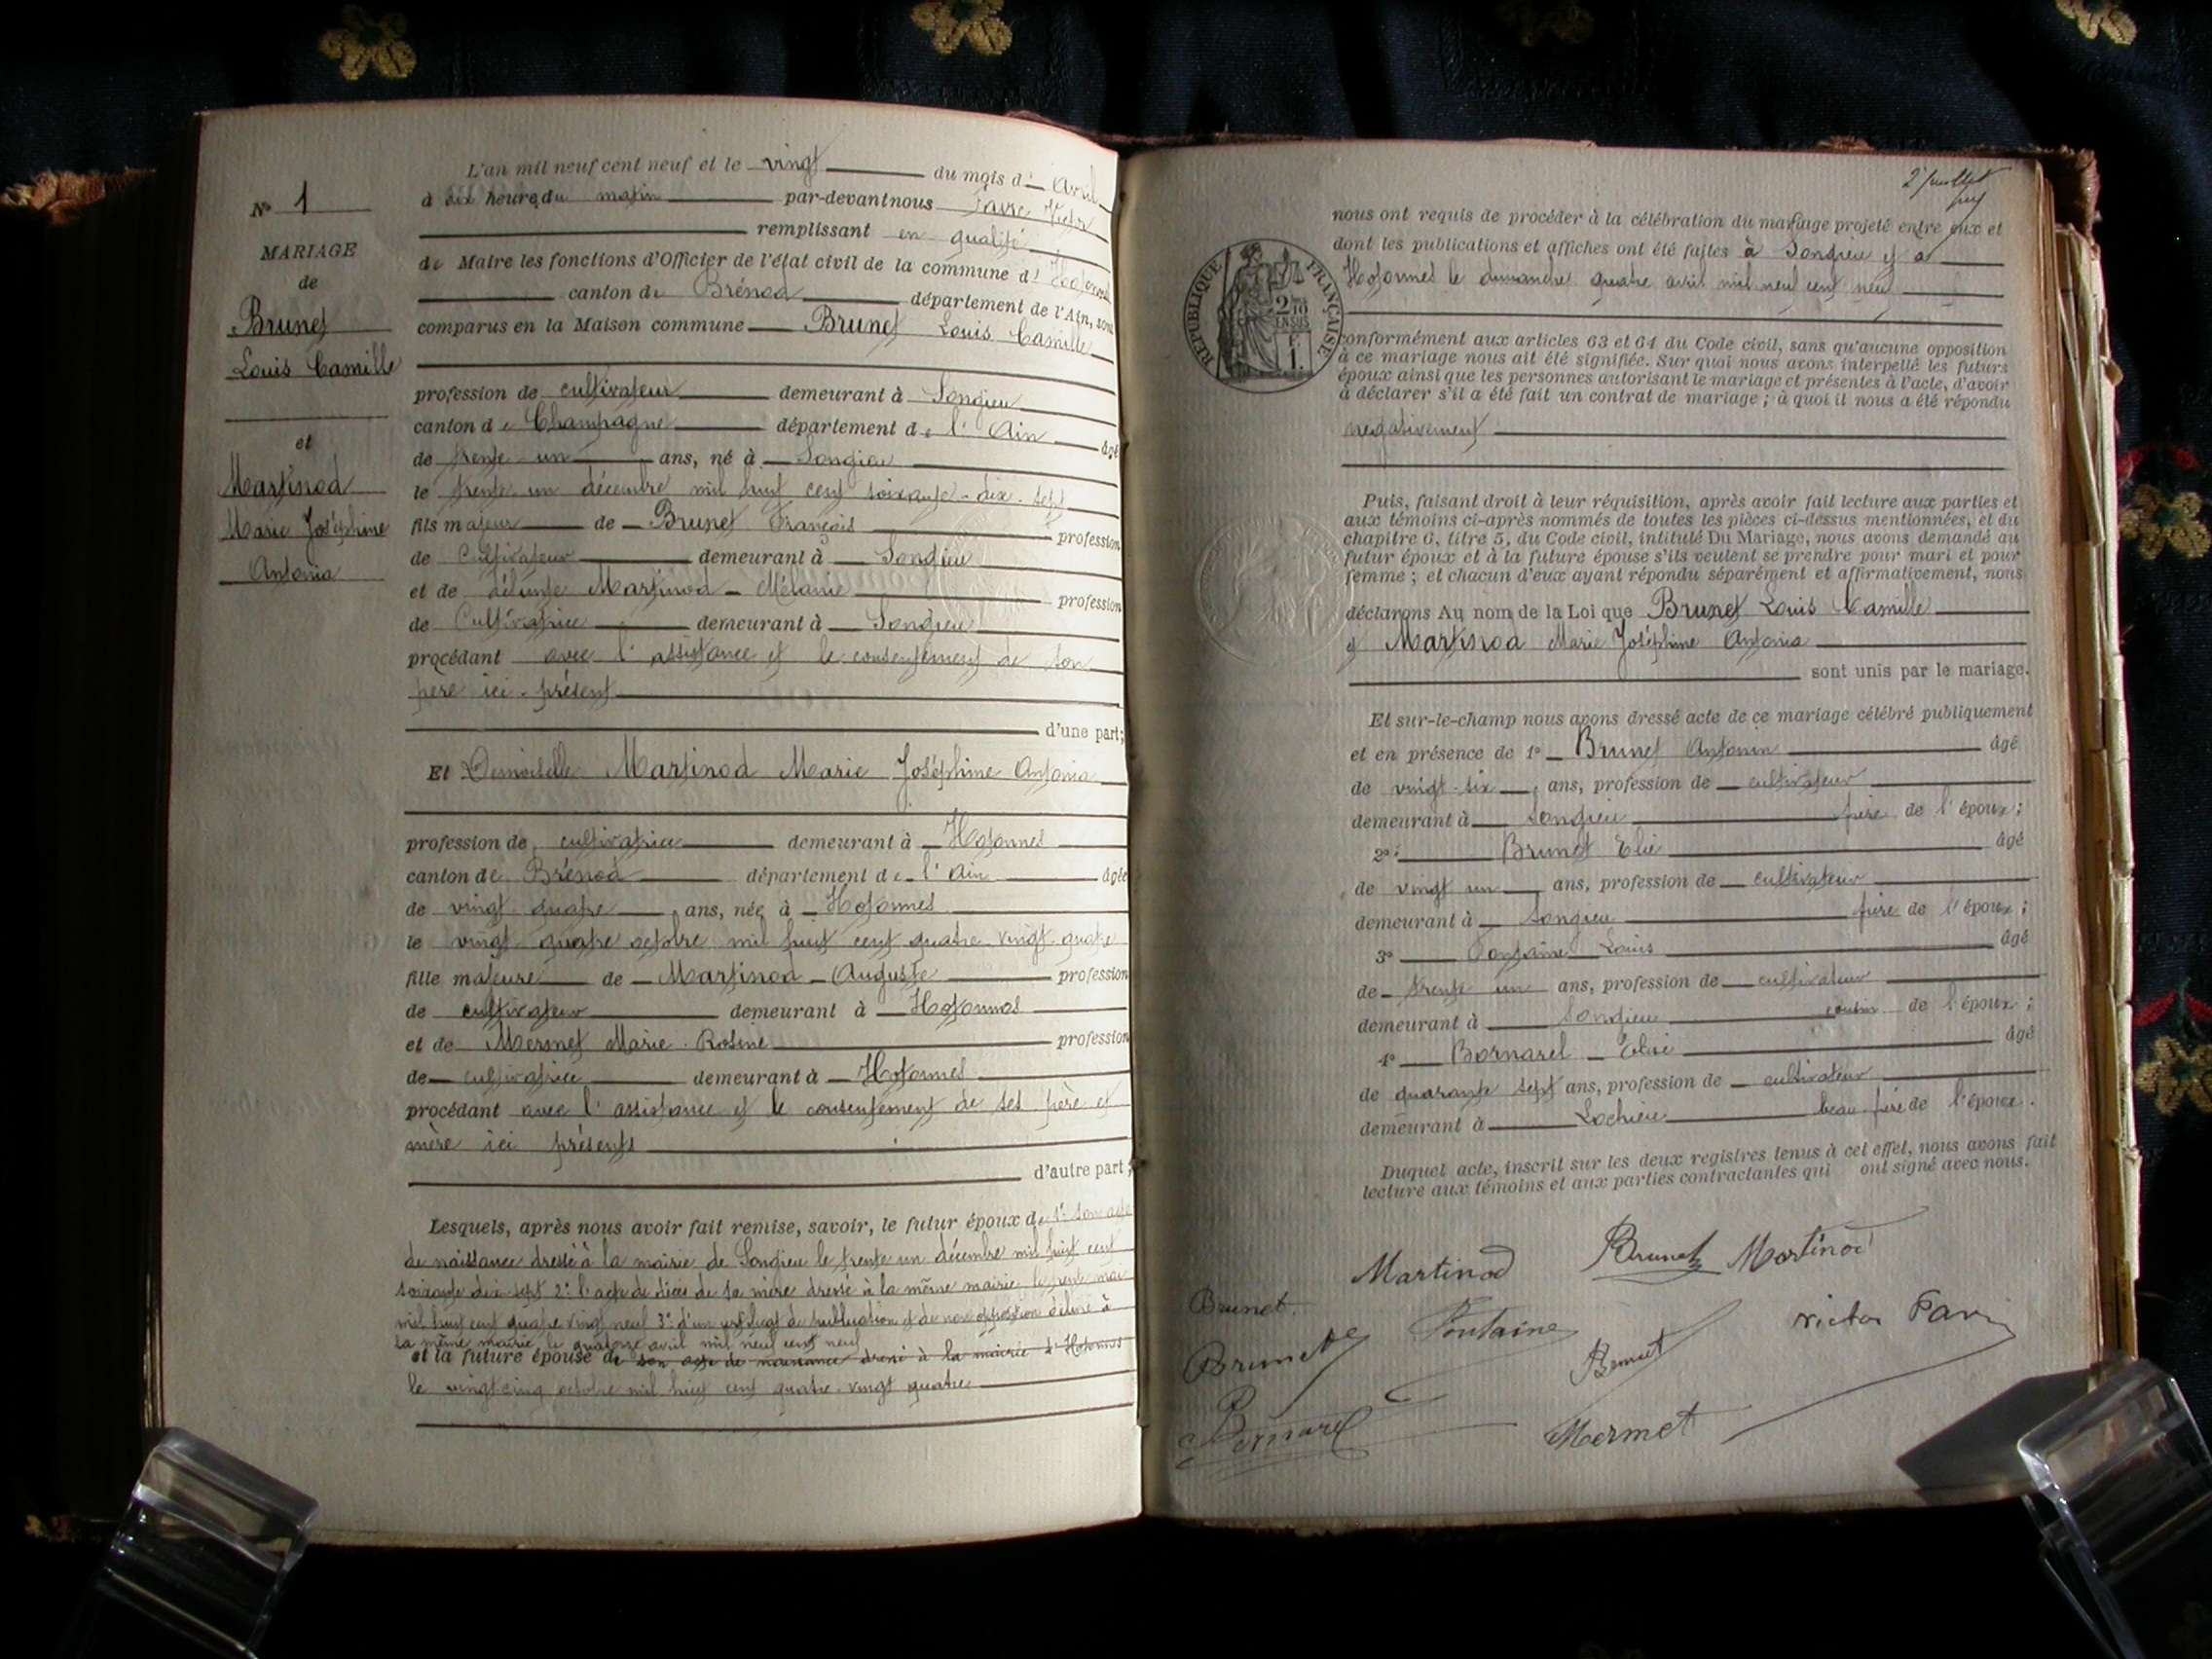 N° 1
MARIAGE
de
Brunet
Louis Camille
et
Martinod
Marie Joséphine
Antonia
L'an mil neuf cent neuf et le vingt du mois d' Avril
à dix heures du matin par-devant nous Favre Victor
remplissant en qualité
de Maire les fonctions d'Officier de l'état civil de la commune d' Hotonnes
canton de Brénod département de l'Ain, sont
comparus en la Maison commune Brunet Louis Camille
profession de cultivateur demeurant à Songieu
canton de Champagne département de l'Ain âgé
de trente-un ans, né à Songieu
le trente un décembre mil huit cent soixante-dix-sept
fils majeur de Brunet François profession
de Cultivateur demeurant à Songieu
et de défunte Martinod Mélanie profession
de Cultivatrice demeurant à Songieu
procédant avec l'assistance et le consentement de son
père ici-présent
d'une part;
Et Demoiselle Martinod Marie Joséphine Antonia
profession de cultivatrice demeurant à Hotonnes
canton de Brénod département de l'Ain âgée
de vingt-quatre ans, née à Hotonnes
le vingt-quatre octobre mil huit cent quatre-vingt-quatre
fille majeure de Martinod Auguste profession
de cultivateur demeurant à Hotonnes
et de Mermet Marie-Rosine profession
de cultivatrice demeurant à Hotonnes
procédant avec l'assistance et le consentement de ses père et
mère ici présents
d'autre part;
Lesquels, après nous avoir fait remise, savoir, le futur époux de 1° son acte
de naissance dressé à la mairie de Songieu le trente un décembre mil huit cent
soixante dix sept 2° l'acte de décès de sa mère dressé à la même mairie le trente mai
mil huit cent quatre vingt neuf 3° d'un certificat de publication et de non opposition délivré à
la même mairie le quatorze avril mil neuf cent neuf
et la future épouse de son acte de naissance dressé à la mairie d'Hotonnes
le vingt cinq octobre mil huit cent quatre-vingt quatre
2e feuillet
nous ont requis de procéder à la célébration du mariage projeté entre eux et
dont les publications et affiches ont été faites à Songieu et à
Hotonnes le dimanche quatre avril mil neuf cent neuf
RÉPUBLIQUE FRANÇAISE
2/10mes
EN SUS
F.
1.
conformément aux articles 63 et 64 du Code civil, sans qu'aucune opposition
à ce mariage nous ait été signifiée. Sur quoi nous avons interpellé les futurs
époux ainsi que les personnes autorisant le mariage et présentes à l'acte, d'avoir
à déclarer s'il a été fait un contrat de mariage; à quoi il nous a été répondu
négativement
Puis, faisant droit à leur réquisition, après avoir fait lecture aux parties et
aux témoins ci-après nommés de toutes les pièces ci-dessus mentionnées, et du
chapitre 6, titre 5, du Code civil, intitulé Du Mariage, nous avons demandé au
futur époux et à la future épouse s'ils veulent se prendre pour mari et pour
femme; et chacun d'eux ayant répondu séparément et affirmativement, nous
déclarons Au nom de la Loi que Brunet Louis Camille
et Martinod Marie Joséphine Antonia
sont unis par le mariage.
Et sur-le-champ nous avons dressé acte de ce mariage célébré publiquement
et en présence de 1° Brunet Antonin âgé
de vingt-six ans, profession de cultivateur
demeurant à Songieu frère de l'époux;
2° Brunet Elie âgé
de vingt un ans, profession de cultivateur
demeurant à Songieu frère de l'époux;
3° Fontaine Louis âgé
de trente un ans, profession de cultivateur
demeurant à Songieu cousin de l'époux;
4° Bornarel Elisé âgé
de quarante sept ans, profession de cultivateur
demeurant à Lochieu beau-frère de l'épouse.
Duquel acte, inscrit sur les deux registres tenus à cet effet, nous avons fait
lecture aux témoins et aux parties contractantes qui ont signé avec nous.
Martinod Brunet Martinod
Brunet
Brunet Fontaine Brunet Victor Favre
Bornarel Mermet